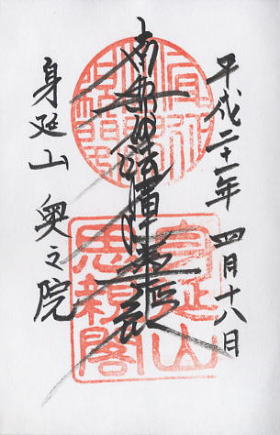 平成二十一年 四月十八日
南無妙法蓮華経
身延山 奥之院
身延山
思親閣